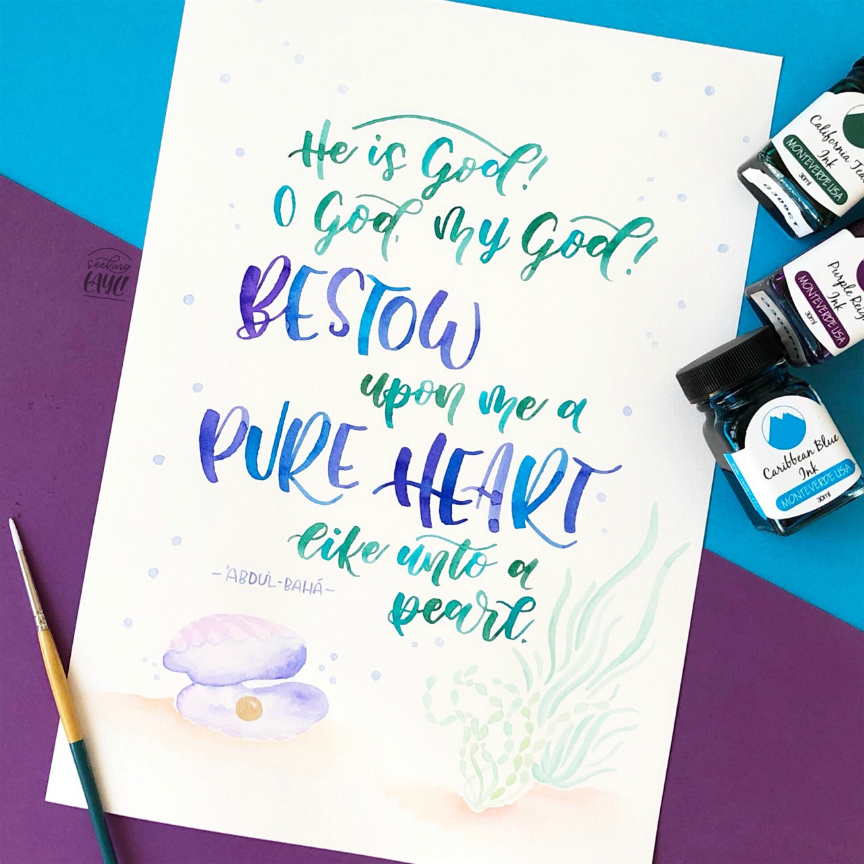 He is God!
O God, my God!
BESTOW
upon me a
PURE HEART
like unto a
pearl.
–'ABDU'L-BAHÁ–
seeking
California Teal
Ink
MONTEVERDE USA
30ml
Purple Reign
Ink
MONTEVERDE USA
30ml
Caribbean Blue
Ink
MONTEVERDE USA
30ml